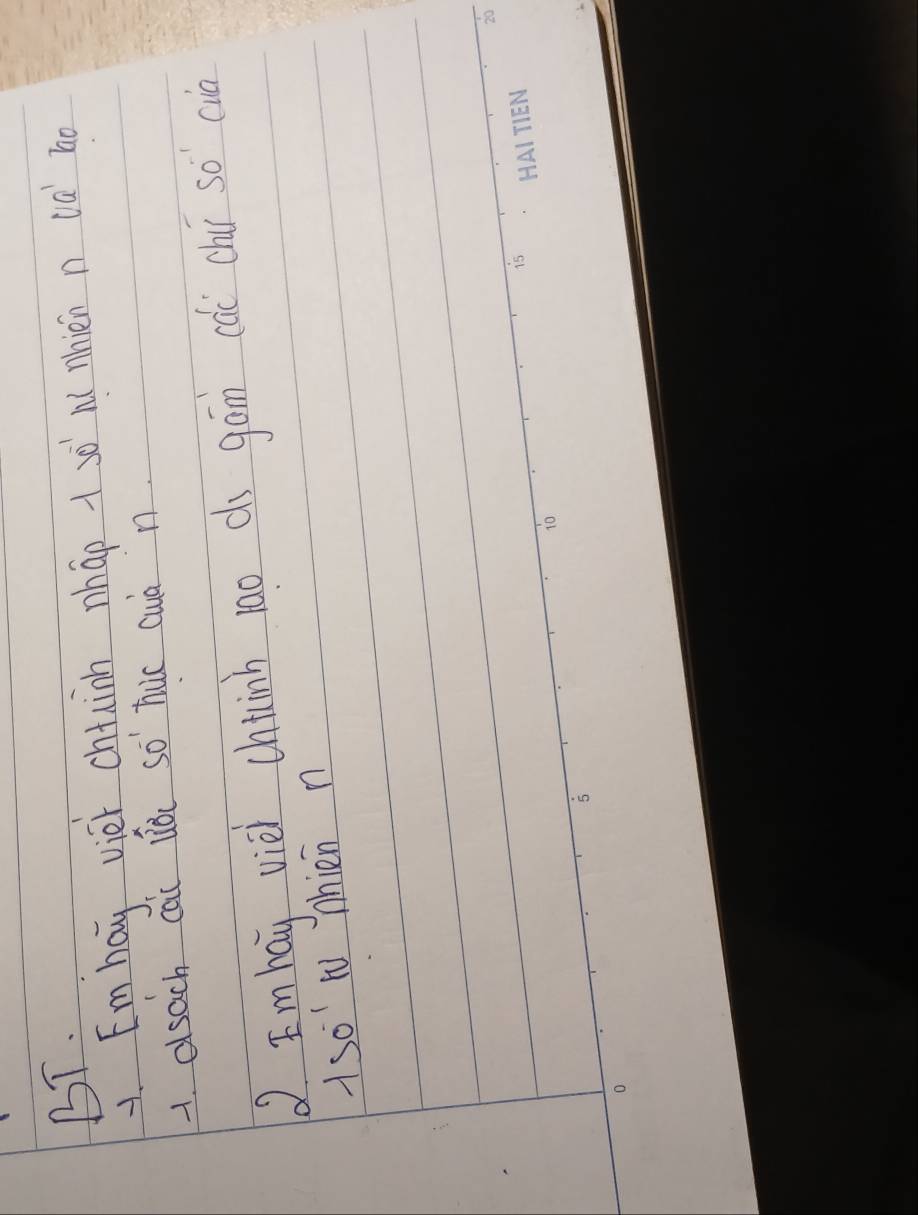 BT.
1. Em hãy viết chtrình nhập 1 số tự nhiên n và tạo
1 dsách các ước số thực của n.
2 Em hãy viết chtrình tạo ds gồm các chữ số của
1 số tự nhiên n
0 5 10 15 20
HAI TIEN